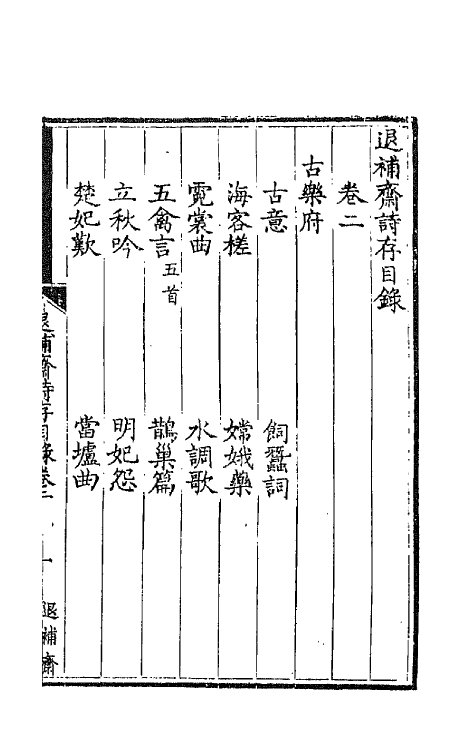 退補齋詩存目錄
卷二
古樂府
古意　飼蠶詞
海客槎　嫦娥藥
霓裳曲　水調歌
五禽言五首　鵲巢篇
立秋吟　明妃怨
楚妃歎　當壚曲
退補齋詩存目錄卷二　一　退補齋